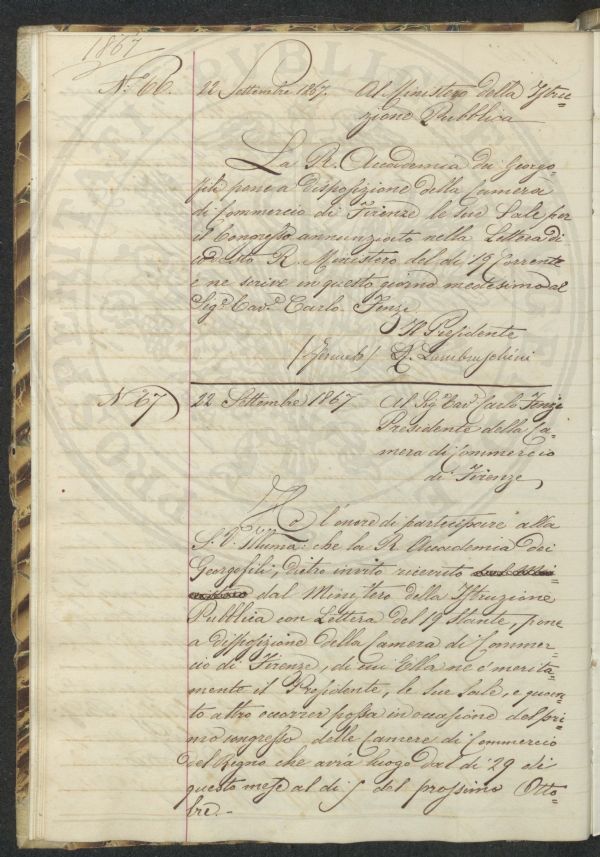 1867
N.º 66. 22 Settembre 1867. Al Ministero della Istru=
zione Pubblica
La R. Accademia dei Georgo=
fili pone a disposizione della Camera
di Commercio di Firenze le sue Sale per
il Congresso annunziato nella Lettera di
codesto R. Ministero del dì 19 Corrente
e ne scrive in questo giorno medesimo al
Sig.r Cav.e Carlo Fenzi.
Il Presidente
(Firmato) R. Lambruschini
N.º 67 22 Settembre 1867 Al Sig.r Cav.e Carlo Fenzi
Presidente della Ca=
mera di Commercio
di Firenze
Ho l'onore di partecipare alla
S. V. Illma: che la R. Accademia dei
Georgofili, dietro invito ricevuto
dal Ministero della Istruzione
Pubblica con Lettera del 19 stante, pone
a disposizione della Camera di Commer=
cio di Firenze, di cui Ella ne è merita=
mente il Presidente, le sue Sale, e quan=
to altro occorrer possa in occasione del pri=
mo congresso delle Camere di Commercio
del Regno che avrà luogo dal dì 29 di
questo mese al dì 5 del prossimo Otto=
bre.-